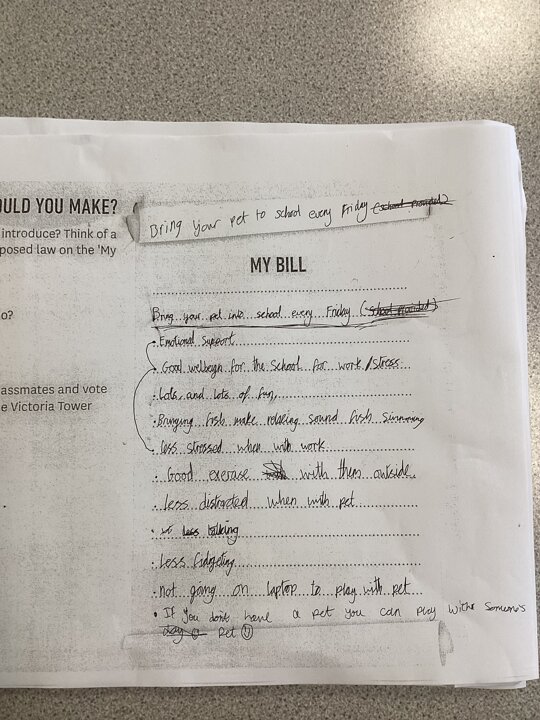 OULD YOU MAKE?
introduce? Think of a
posed law on the 'My
o?
assmates and vote
e Victoria Tower
Bring your pet to school every Friday (school provided)
MY BILL
Bring your pet into school every Friday (school provided)
• Emotional Support
• Good wellbegn for the School for work/stress
• Lots and lots of fun,
• Bringing fish make relaxing sound fish swimming
• less stressed when with work
• Good exerase with them outside.
• less distracted when with pet
• less talking
• Less fidgeting
• not going on laptop to play with pet
• If you don't have a pet you can play withe someone's
pet